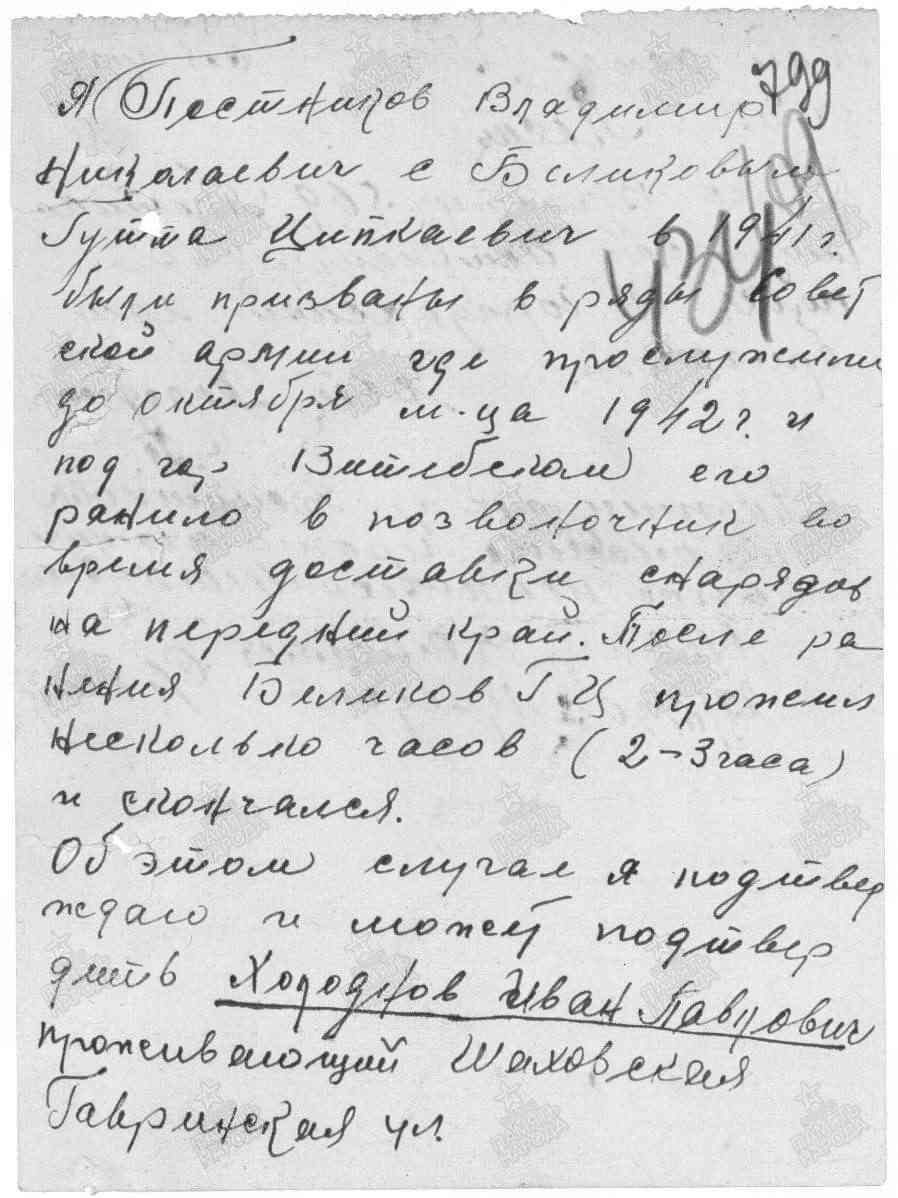 Я Постников Владимир
799
Николаевич с Беликовым
Гутта Ципкаевич в 1941 г.
434
были призваны в ряды Совет
ской армии где прослужили
до октября м-ца 1942 г. и
под гор Витебском его
ранило в позвоночник во
время доставки снарядов
на передний край. После ра
нения Беликов Г Ц прожил
несколько часов (2-3 часа)
и скончался.
Об этом случае я подтвер
ждаю и может подтвер
дить Холоднов Иван Павлович
проживающий Шаховская
Гавринская ул.